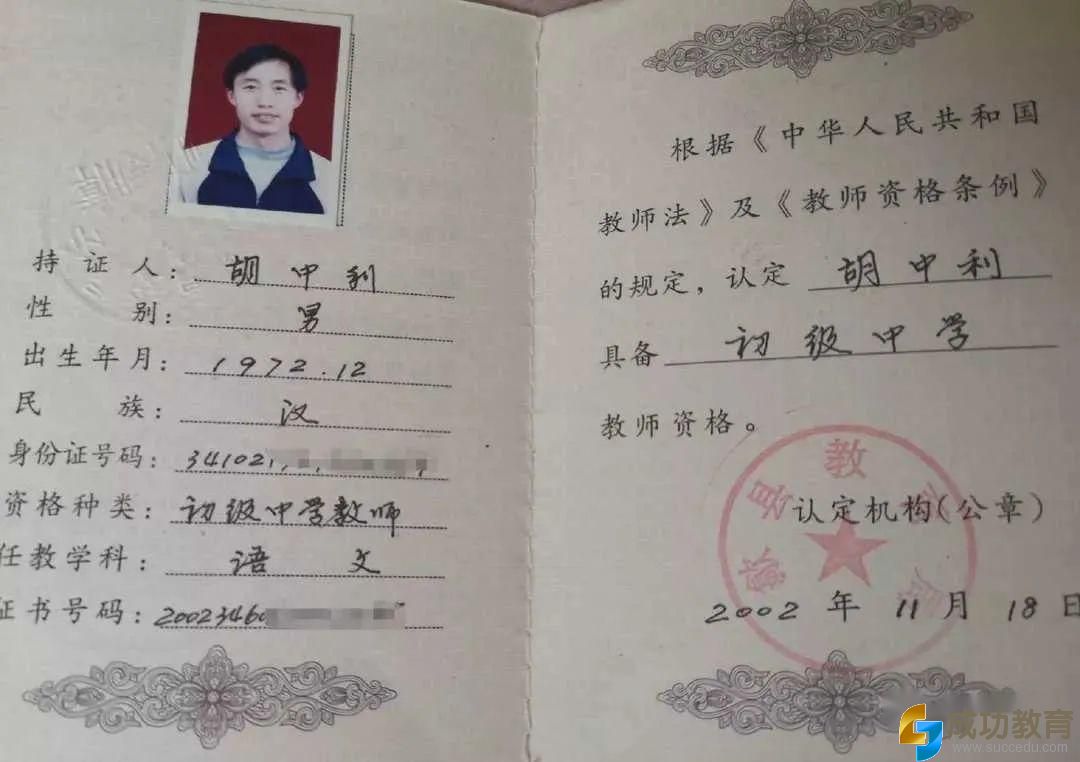 持证人：胡中利
性别：男
出生年月：1972.12
民族：汉
身份证号码：341021
资格种类：初级中学教师
任教学科：语文
证书号码：20023460
根据《中华人民共和国
教师法》及《教师资格条例》
的规定，认定 胡中利
具备 初级中学
教师资格。
县教
认定机构（公章）
2002年11月18日
成功教育
www.succedu.com